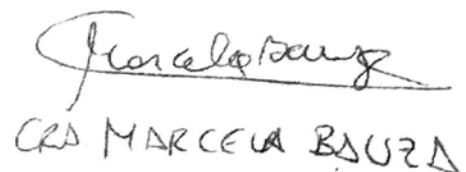 Marcela Bauza
CRA MARCELA BAUZA